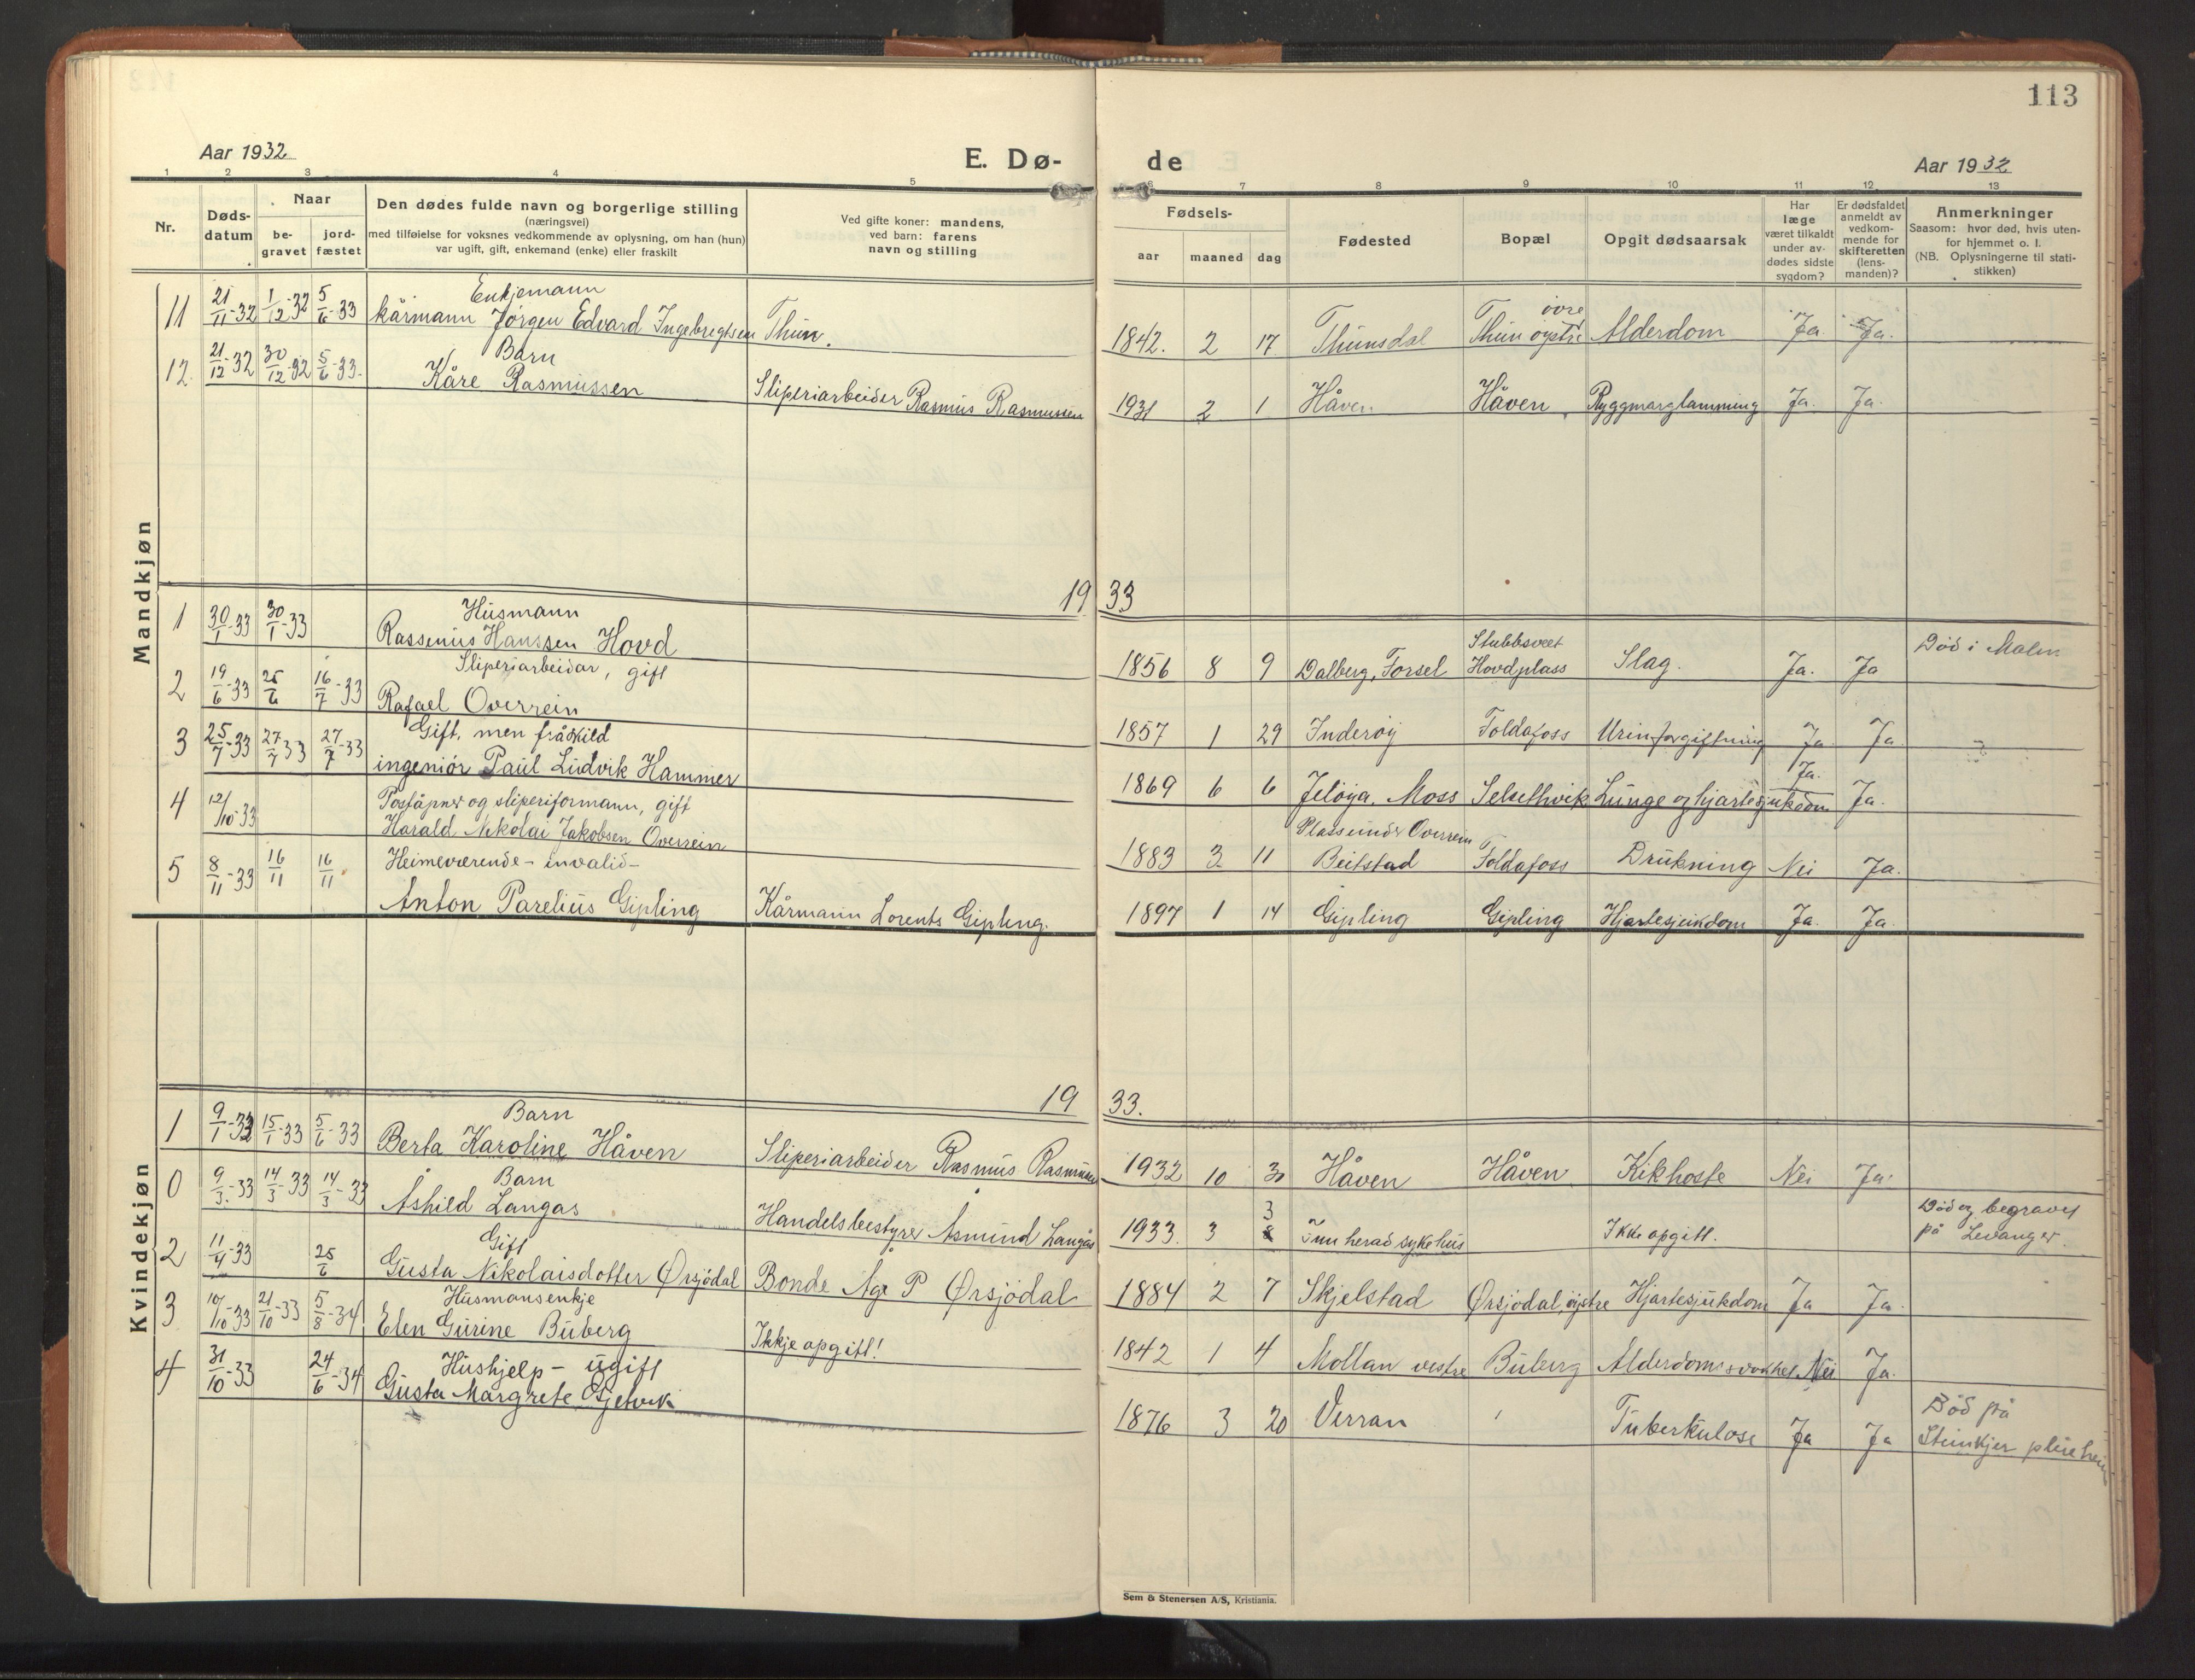 113
Aar 1932
E. Dø-
de
Aar 1932
1 2 3 4 5
6 7 8 9 10 11 12 13
Nr.
Døds-
datum
Naar
be-
gravet
jord-
fæstet
Den dødes fulde navn og borgerlige stilling
(næringsvei)
med tilføielse for voksnes vedkommende av oplysning, om han (hun)
var ugift, gift, enkemand (enke) eller fraskilt
Ved gifte koner: mandens,
ved barn: farens
navn og stilling
Fødsels-
aar maaned dag
Fødested
Bopæl
Opgit dødsaarsak
Har
læge
været tilkaldt
under av-
dødes sidste
sygdom?
Er dødsfaldet
anmeldt av
vedkom-
mende for
skifteretten
(lens-
manden)?
Anmerkninger
Saasom: hvor død, hvis uten-
for hjemmet o. l.
(NB. Oplysningerne til stati-
stikken)
Mandkjøn
Enkjemann
11 21/11-32 1/12-32 5/6-33 kårmann Jørgen Edvard Ingebregtsen Thun.
øvre
1842. 2 17 Thunsdal Thun øystre Alderdom Ja. Ja.
Barn
12. 21/12-32 30/12-32 5/6-33. Kåre Rasmussen Sliperiarbeider Rasmus Rasmussen
1931 2 1 Håven Håven Ryggmarglamming Ja. Ja.
1933
Husmann
1 30/1-33 30/1-33 Rassenius Hanssen Hovd
Stubbsveet
1856 8 9 Dalberg, Forsel Hovdplass Slag. Ja. Ja Död i Malm
Sliperiarbeidar, gift
2 19/6-33 25/6 16/7-33 Rafael Overrein
1857 1 29 Inderöy Foldafoss Urinforgiftning Ja Ja.
Gift, men fråskild
3 25/7-33 27/7 33 27/7-33 ingeniör Paul Ludvik Hammer
Ja.
1869 6 6 Jelöya, Moss Selsethvik Lunge og hjartesjukdom Ja.
Poståpner og sliperiformann, gift
4 12/10-33 Harald Nikolai Jakobsen Overrein
Plass under Overrein
1883 3 11 Beitstad Foldafoss Drukning Nei Ja.
Heimeværende - invalid -
5 8/11-33 16/11 16/11 Anton Parelius Gipling Kårmann Lorents Gipling.
1897 1 14 Gipling Gipling Hjartesjukdom Ja. Ja.
Kvindekjøn
1933.
Barn
1 9/1-33 15/1-33 5/6-33 Berta Karoline Håven Sliperiarbeider Rasmus Rasmussen
1932 10 31 Håven Håven Kikhoste Nei Ja.
Barn
0 9/3-33 14/3-33 14/3-33 Åshild Langås Handelsbestyrer Åsmund Langås
3
1933. 3 8 Innherad sykehus Ikke opgitt.
Död og begravet
på Levanger.
Gift
2 11/4-33 25/6 Gusta Nikolaisdotter Ørsjödal Bonde Åge P Ørsjödal
1884 2 7 Skjelstad Ørsjödal, öystre Hjartesjukdom Ja Ja.
Husmansenkje
3 10/10-33 21/10-33 5/8-34 Elen Gurine Buberg Ikkje opgitt!
1842 1 4 Mollan vestre Buberg Alderdomssvakhet Nei Ja.
Hushjelp - ugift
4 31/10-33 24/6-34 Gusta Margrete Gjetvik
1876 3 20 Verran Tuberkulose Ja Ja
Död på
Steinkjer pleieheim
Sem & Stenersen A/S, Kristiania.